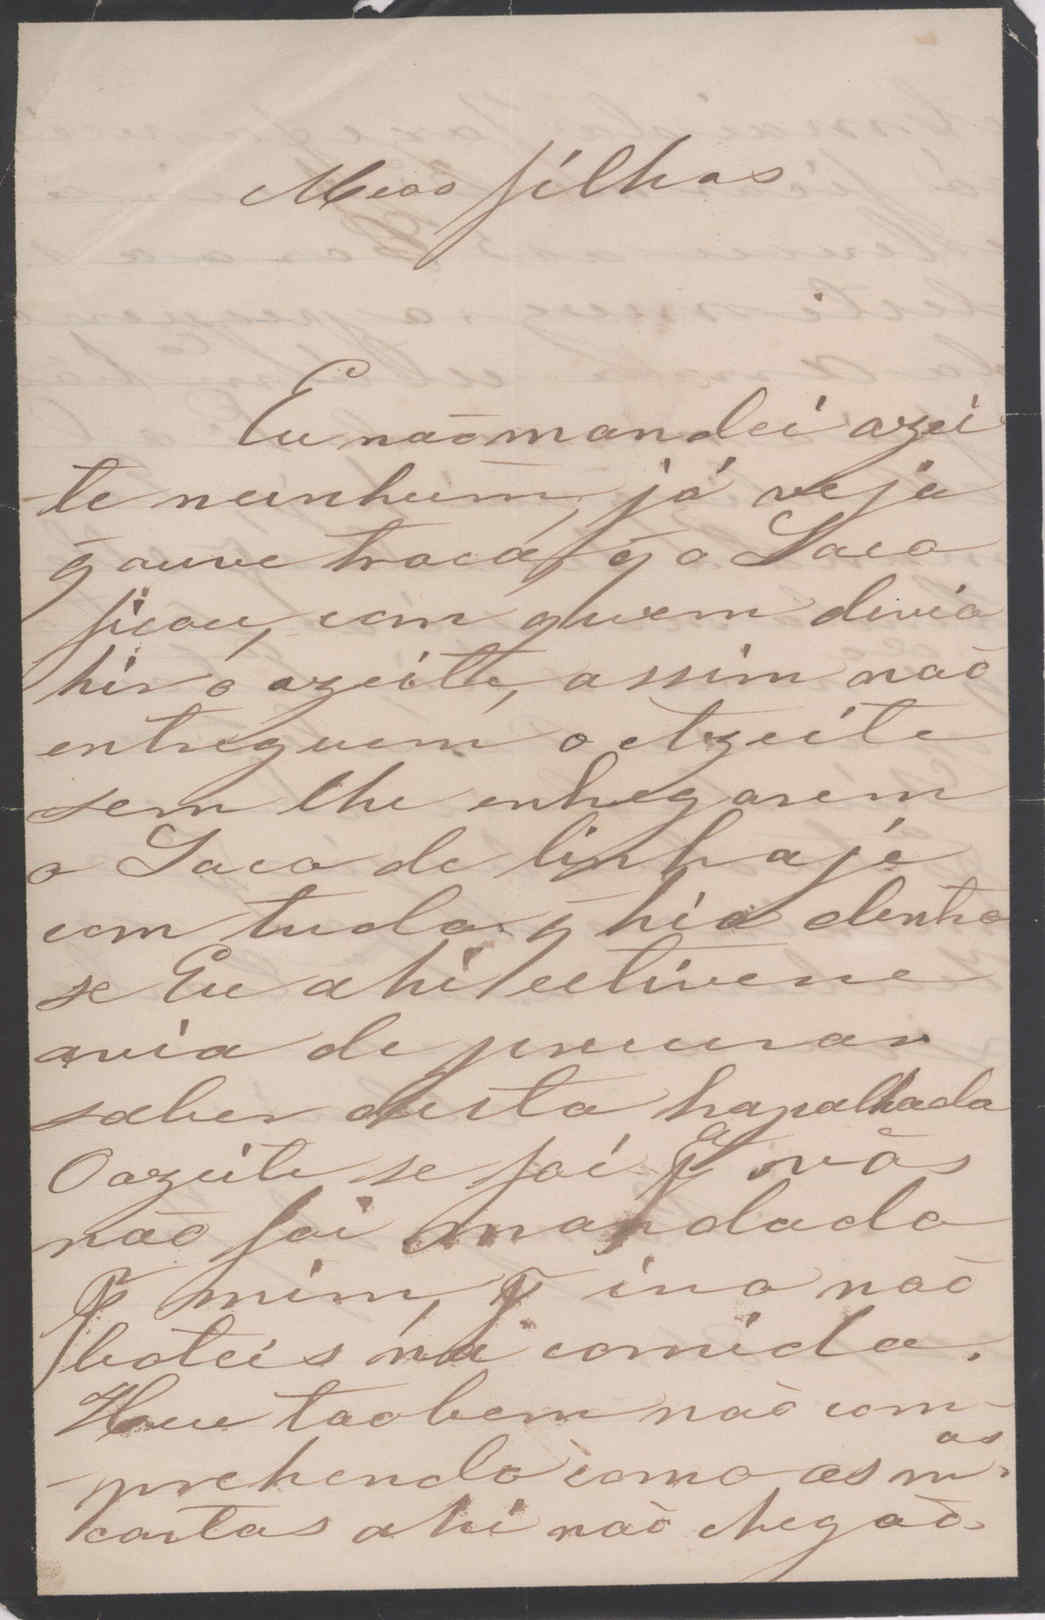 Meos filhos
Eu não mandei azei
te neunhum, já veja
q̃ ouve troca, q̃ o Saco
ficou, com quem divia
hir o azeite, assim não
entreguem o Azeite
sem lhe entregarem
o Saco de linhaje
com tudo q̃ hia dentro
se Eu ahi estivece
avia de precurar
saber desta trapalhada
O azeite se foi pª vós
não foi mandado
P mim, P iso não
boteis na comida.
Heu taobem não com-
prehendo como as mas
cartas ahi não chegão.